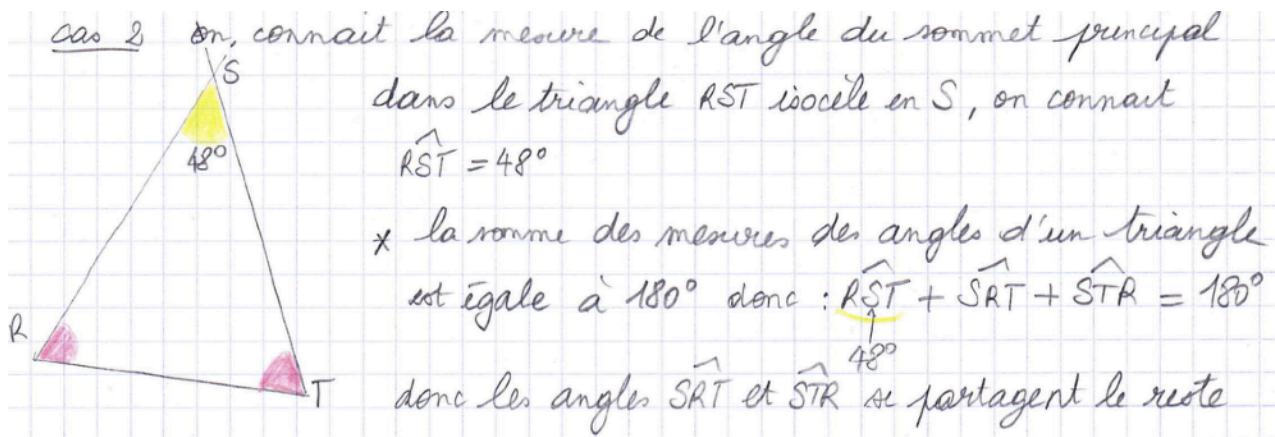 cas 2 on connait la mesure de l'angle du sommet principal
S
dans le triangle RST isocèle en S, on connait
48°
R͡ST = 48°
* la somme des mesures des angles d'un triangle
est égale à 180° donc : R͡ST + S͡RT + S͡TR = 180°
R
48°
T
donc les angles S͡RT et S͡TR se partagent le reste